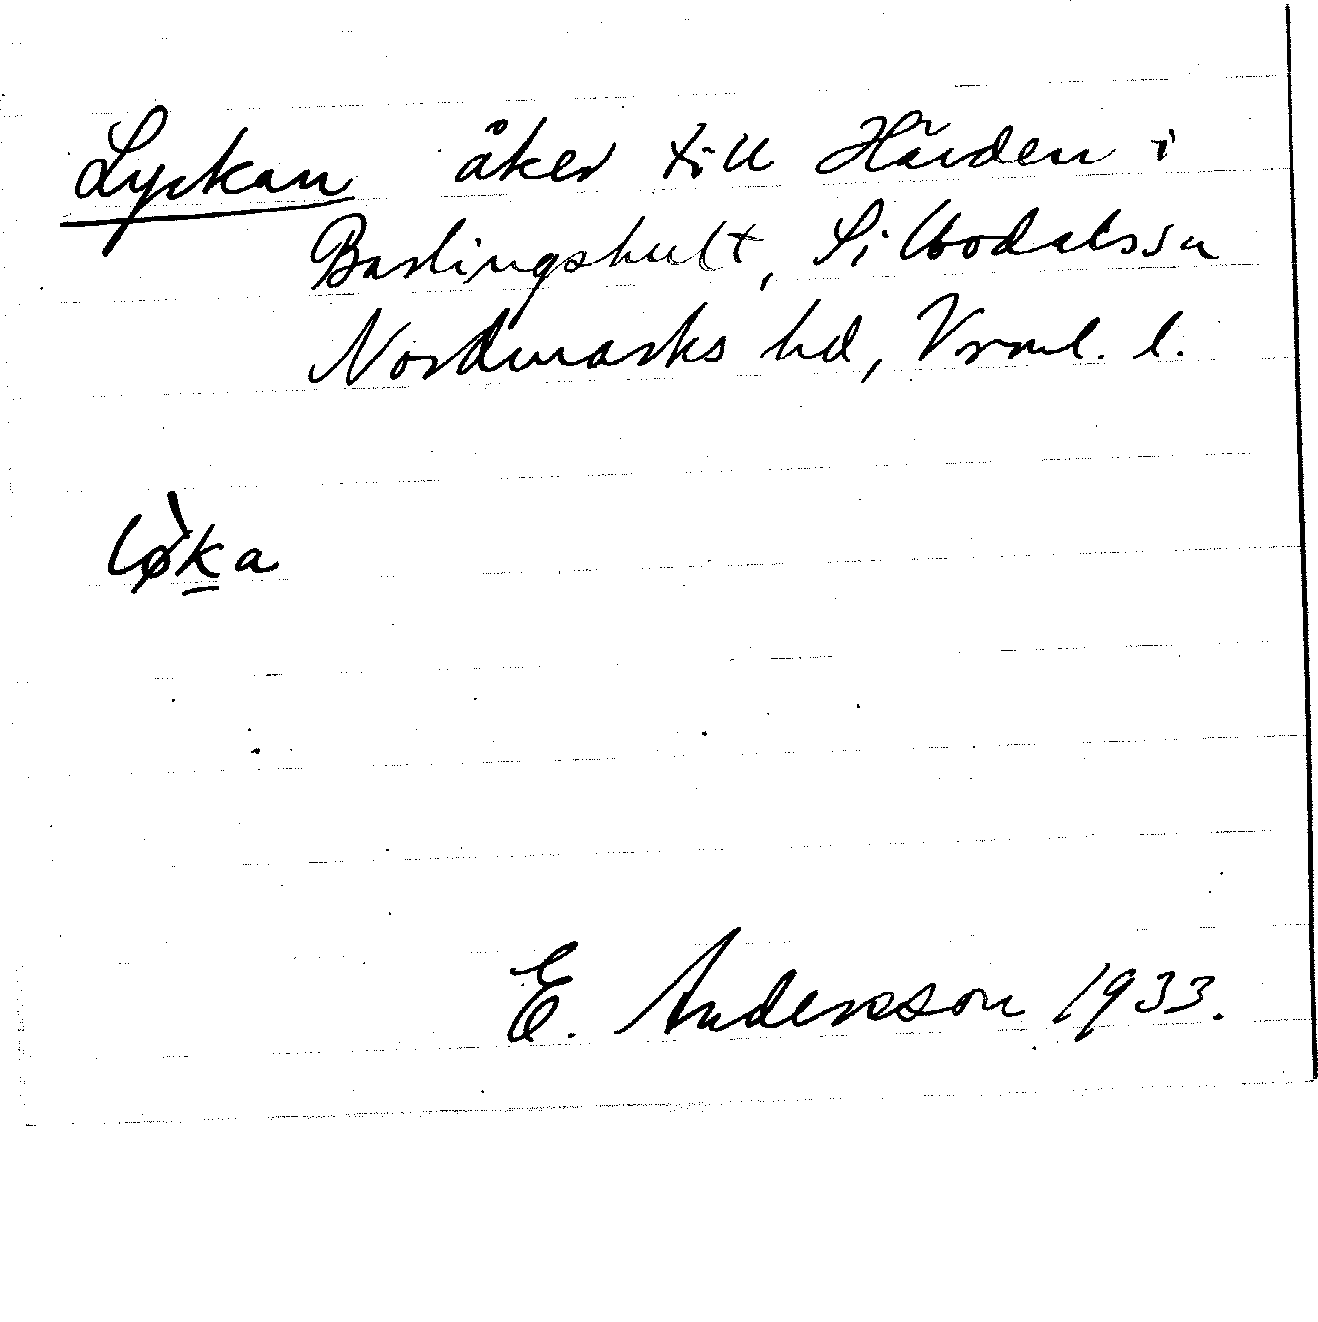 Lyckan åker till Härden i
Barlingshult, Silbodals sn
Nordmarks hd, Vrml. l.
lø̀ka
E. Andersson 1933.